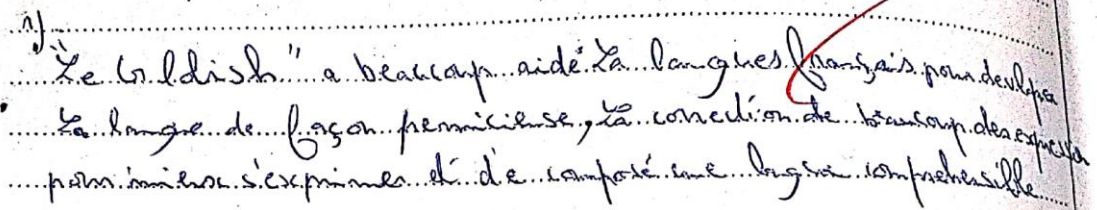 1)
"Le Goldish" a beaucoup aidé La langues français pour devlper
La langue de façon perniciense, La corrección de beaucoup des expressio
pour miens s'exprimer et de composé une compréhensible